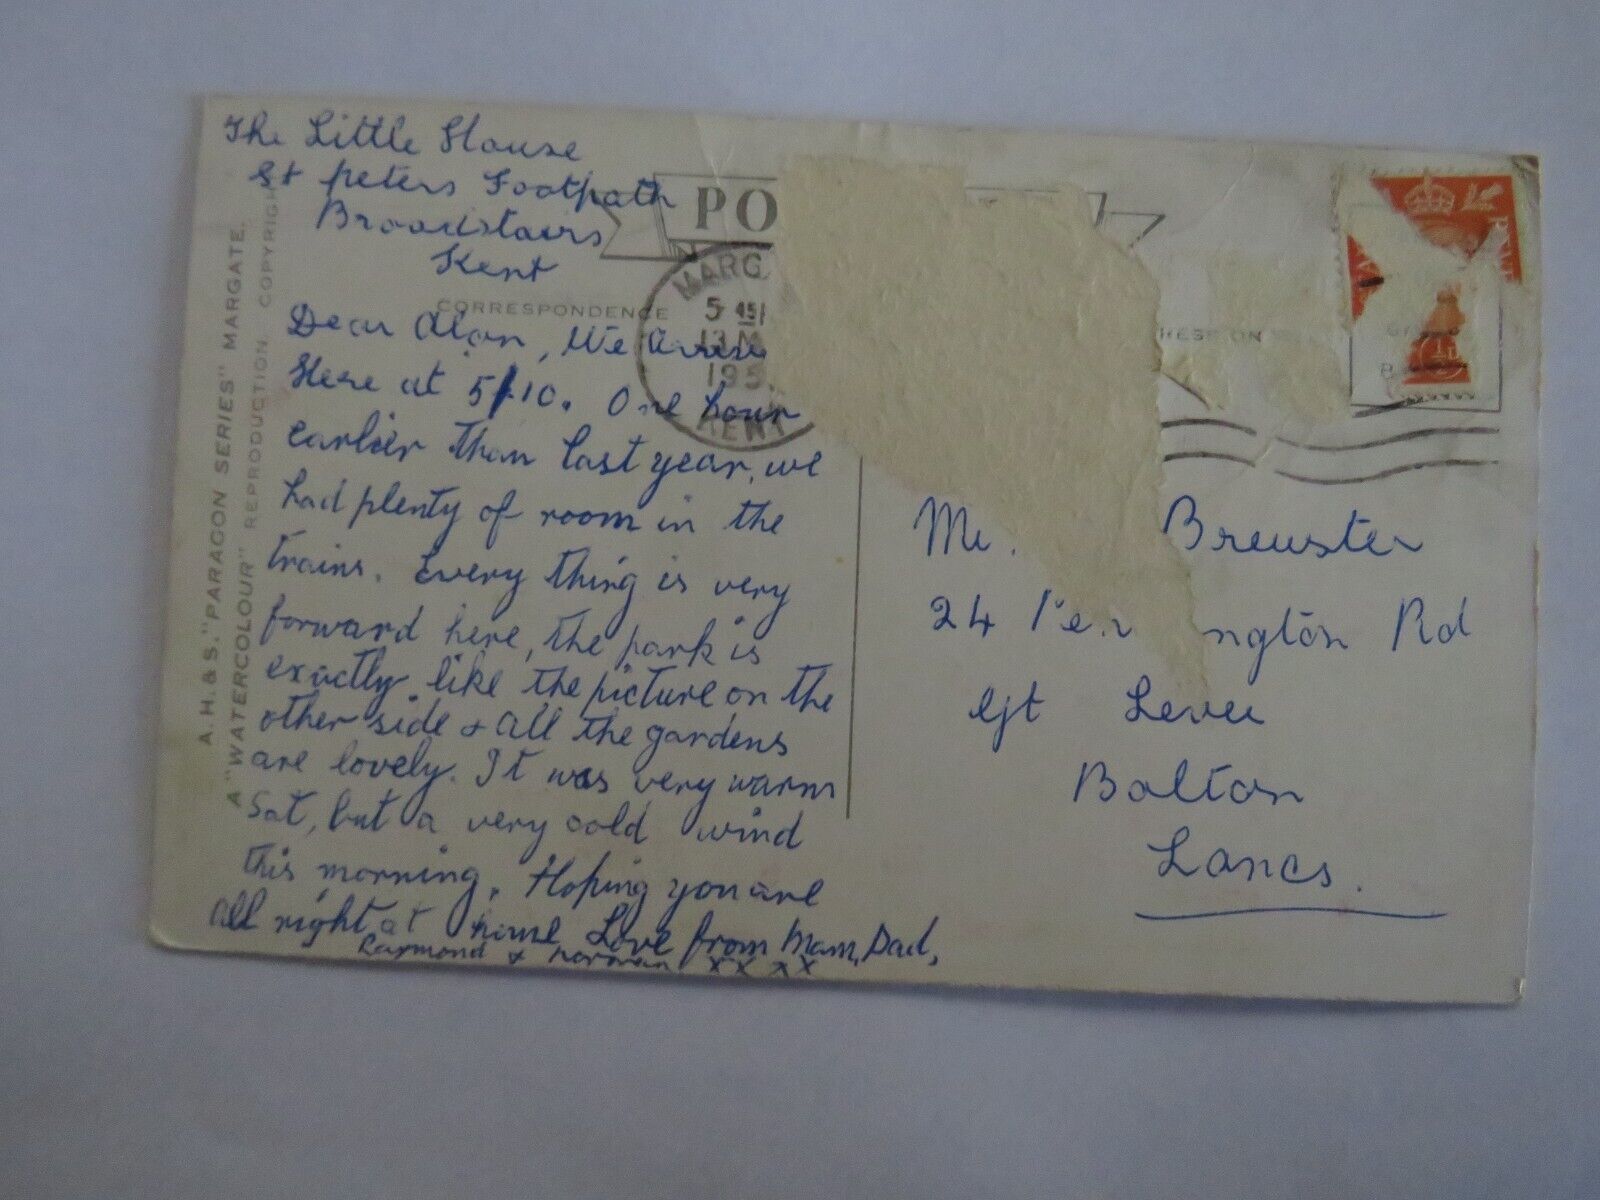 The Little House
St Peters Footpath
Broadstairs
Kent
PO
MARG
5 45
13 M
195
KENT
CORRESPONDENCE
Dear Alan, We
Here at 5/10. One hour
earlier than last year, we
had plenty of room in the
trains. Every thing is very
forward here, the park is
exactly like the picture on the
other side & all the gardens
are lovely. It was very warm
Sat, but a very cold wind
this morning. Hoping you are
all right at home Love from Mam, Dad,
Raymond & Norman XX XX
A.H.& S. "PARAGON SERIES" MARGATE.
A "WATERCOLOUR" REPRODUCTION. COPYRIGH
Mr. Brewster
24 ngton Rd
Gt Lever
Bolton
Lancs.